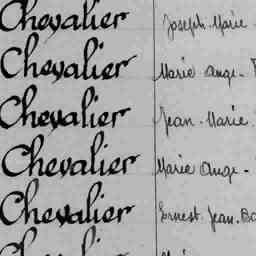 Chevalier Joseph-Marie
Chevalier Marie Ange-
Chevalier Jean-Marie
Chevalier Marie Ange-
Chevalier Ernest Jean
Chevalier